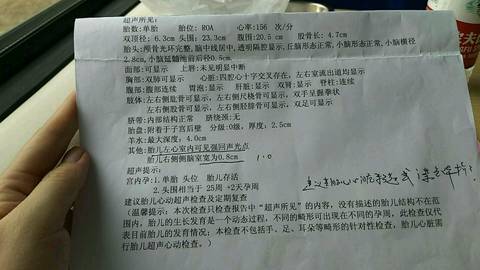 超声所见：
胎数：单胎 胎位：ROA 心率：156 次/分
双顶径：6.3cm 头围：23.3cm 腹围：20.5 cm 股骨长：4.7cm
胎头：颅骨光环完整，脑中线居中，透明隔腔显示，丘脑形态正常，小脑形态正常，小脑横径
2.8cm，小脑延髓池前后径0.5cm．
面部：可显示 上唇：未见明显中断
胸部：双肺可显示 心脏：四腔心十字交叉存在，左右室流出道均显示
腹部：腹部连续 胃泡：显示 肝脏：显示 双肾：显示 脊柱：连续
肢体：左右侧肱骨可显示，左右侧尺桡骨可显示，双手呈握拳状
左右侧股骨可显示，左右侧胫腓骨可显示，双足可显示
脐带：内部结构正常 脐绕颈：无
胎盘：附着于子宫后壁 分级：0级，厚度：2.5cm
羊水：最大深度：4.0cm
其他：胎儿左心室内可见强回声光点
胎儿右侧侧脑室宽为0.8cm 1.0
超声提示：
宫内孕：1.单胎 头位 胎儿存活
2.头围相当于 25周 +2天孕周
建议胎儿心动超声检查及定期复查
（温馨提示：本次检查只检查报告中“超声所见”的内容，没有描述的胎儿结构不在范
围内，胎儿的生长发育是一个动态过程，不同的畸形可出现在不同的孕周，此检查仅代
表目前胎儿的发育情况；本检查不包括手、足、耳朵等畸形的针对性检查，胎儿心脏需
行胎儿超声心动检查。）